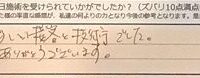 日施術を受けられていかがでしたか？（ズバリ10点満点
様の率直な御感想が、私達の何よりの力となり今後の参考となります。是
いい接客と技術でした。
ありがとうございます。